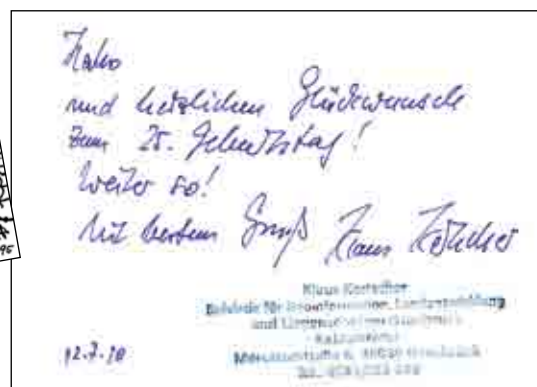 Hallo
und herzlichen Glückwunsch
zum 25. Geburtstag!
Weiter so!
Mit bestem Gruß Klaus Kertscher
Klaus Kertscher
Behörde für Geoinformation, Landentwicklung
und Liegenschaften
Katasteramt
12.7.10